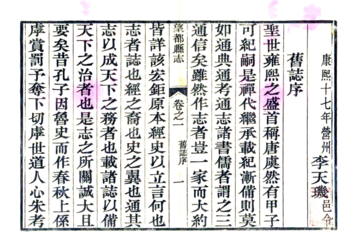 舊誌序
康熙十七年營州李天璣邑令
聖世雍熙之盛首稱唐虞然有甲子
可紀嗣是禪代繼承載紀漸備則莫
如通典通考通志諸書儒者謂之三
通信矣雖然作志者豈一家而大約
望都縣志 卷之二 舊誌序 一
皆詳該宏鉅原本經史以立言何也
志者誌也經之裔也史之翼也通其
志以成天下之務者也載諸志以備
天下之治者也是志之所關誠大且
要矣昔孔子因魯史而作春秋上係
虖賞罰予奪下切虖世道人心朱考